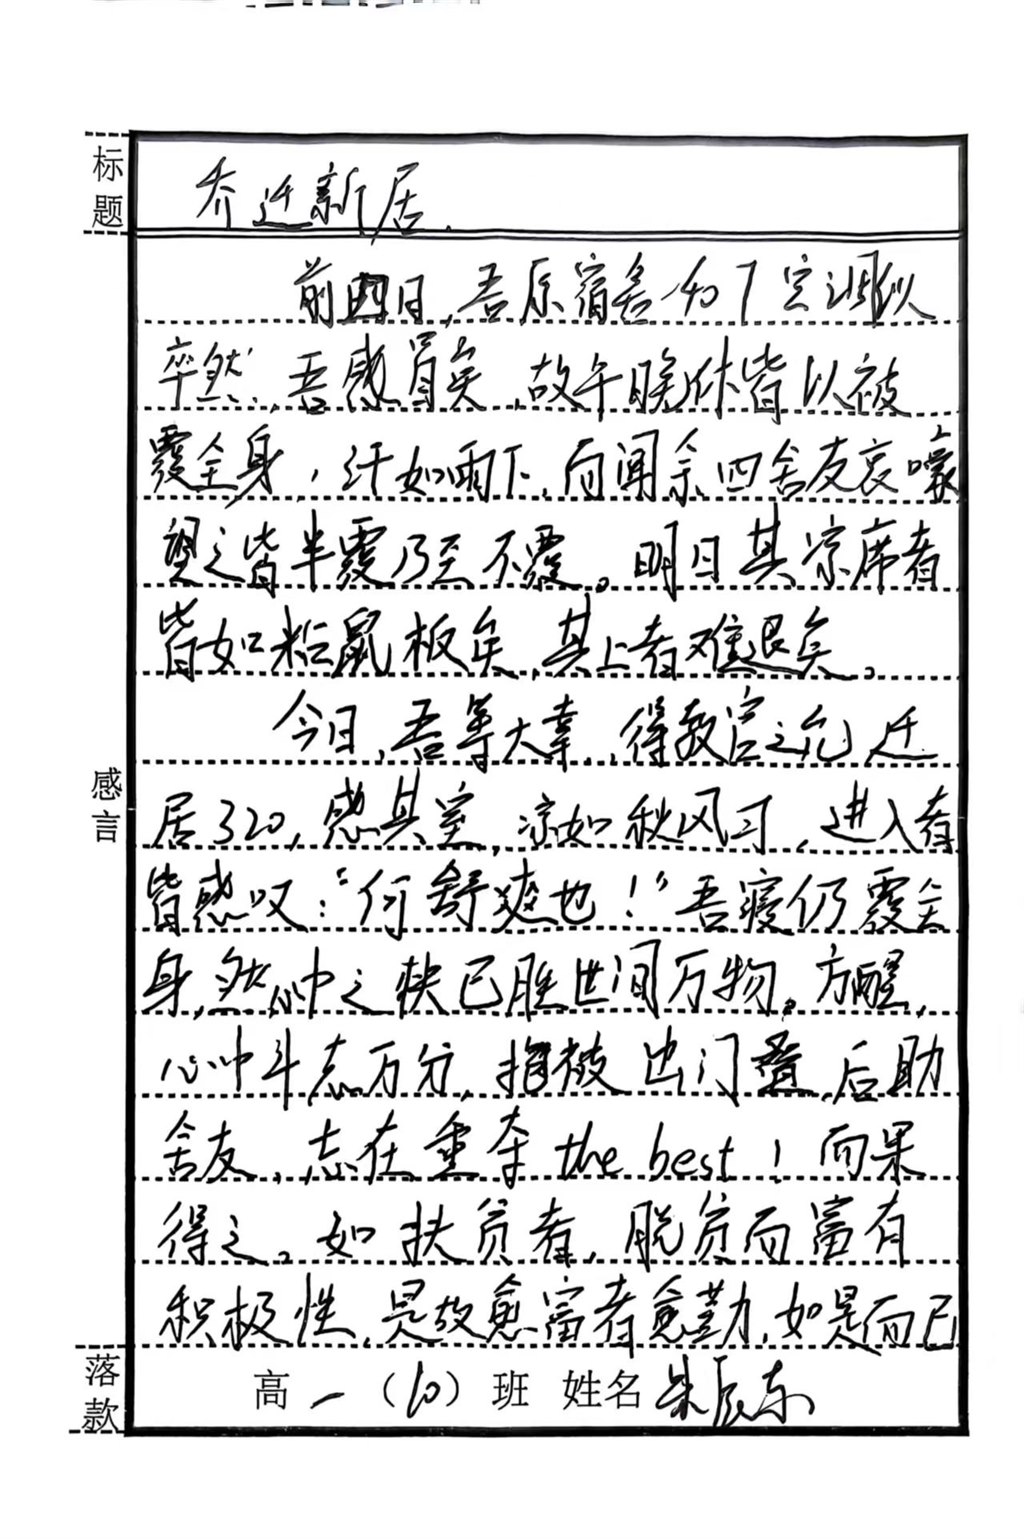 标题
乔迁新居.
前四日,吾原宿舍
卒然,吾感冒矣,故午晚休皆以被
覆全身,汗如雨下,而闻余四舍友哀嚎
望之皆半覆乃至不覆。明日其凉席者
皆如粘鼠板矣,其上者难退矣。
今日,吾等大幸,得教官之允迁
居320,感其室,凉如秋风习,进入者
皆感叹:“何舒爽也!”吾寝仍覆全
身,然心中之快已胜世间万物。方醒,
心中斗志万分,抱被出门叠,后助
舍友,志在重夺the best!而果
得之。如扶贫者,脱贫而富有
积极性,是故愈富者愈勤,如是而已
感言
落款
高一(10)班 姓名 朱辰东